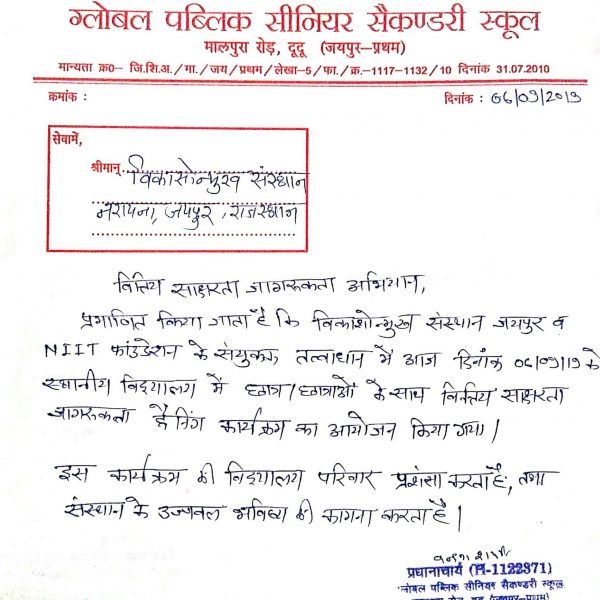 ग्लोबल पब्लिक सीनियर सैकण्डरी स्कूल
मालपुरा रोड़, दूदू (जयपुर-प्रथम)
मान्यता क्र०- जि.शि.अ./मा./जय/प्रथम/लेखा-5/फा./क्र.-1117-1132/10 दिनांक 31.07.2010
क्रमांक :
दिनांक : 06/09/2019
सेवामें,
श्रीमान् विकासोन्मुख संस्थान
नरायना, जयपुर, राजस्थान
वित्तिय साक्षरता जागरूकता अभियान,
प्रमाणित किया जाता है कि विकाशोन्मुख संस्थान जयपुर व
NIIT फांउडेशन के संयुक्त तत्वाधान में आज दिनांक 06/09/19 को
स्थानीय विद्यालय में छात्र/छात्राओं के साथ वित्तिय साक्षरता
जागरूकता ट्रैनिंग कार्यक्रम का आयोजन किया गया।
इस कार्यक्रम की विद्यालय परिवार प्रशंसा करता है, तथा
संस्थान के उज्यवल भविष्य की कामना करता है।
प्रधानाचार्य (PI-1122371)
ग्लोबल पब्लिक सीनियर सैकण्डरी स्कूल